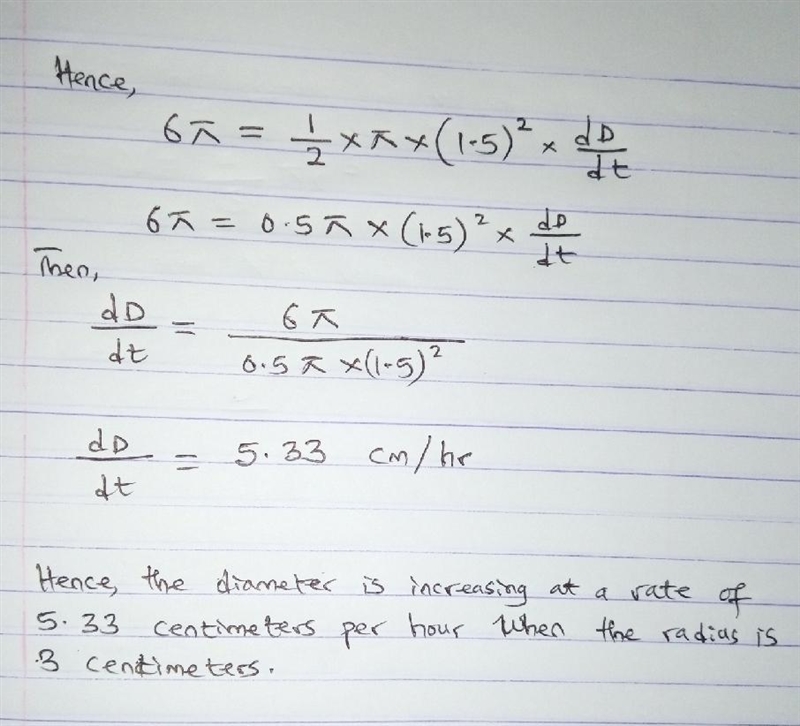 Hence,
6π = 1/2 × π × (1.5)² × dD/dt
6π = 0.5π × (1.5)² × dD/dt
Then,
dD/dt = 6π / 0.5π × (1.5)²
dD/dt = 5.33 cm/hr
Hence, the diameter is increasing at a rate of
5.33 centimeters per hour when the radius is
3 centimeters.